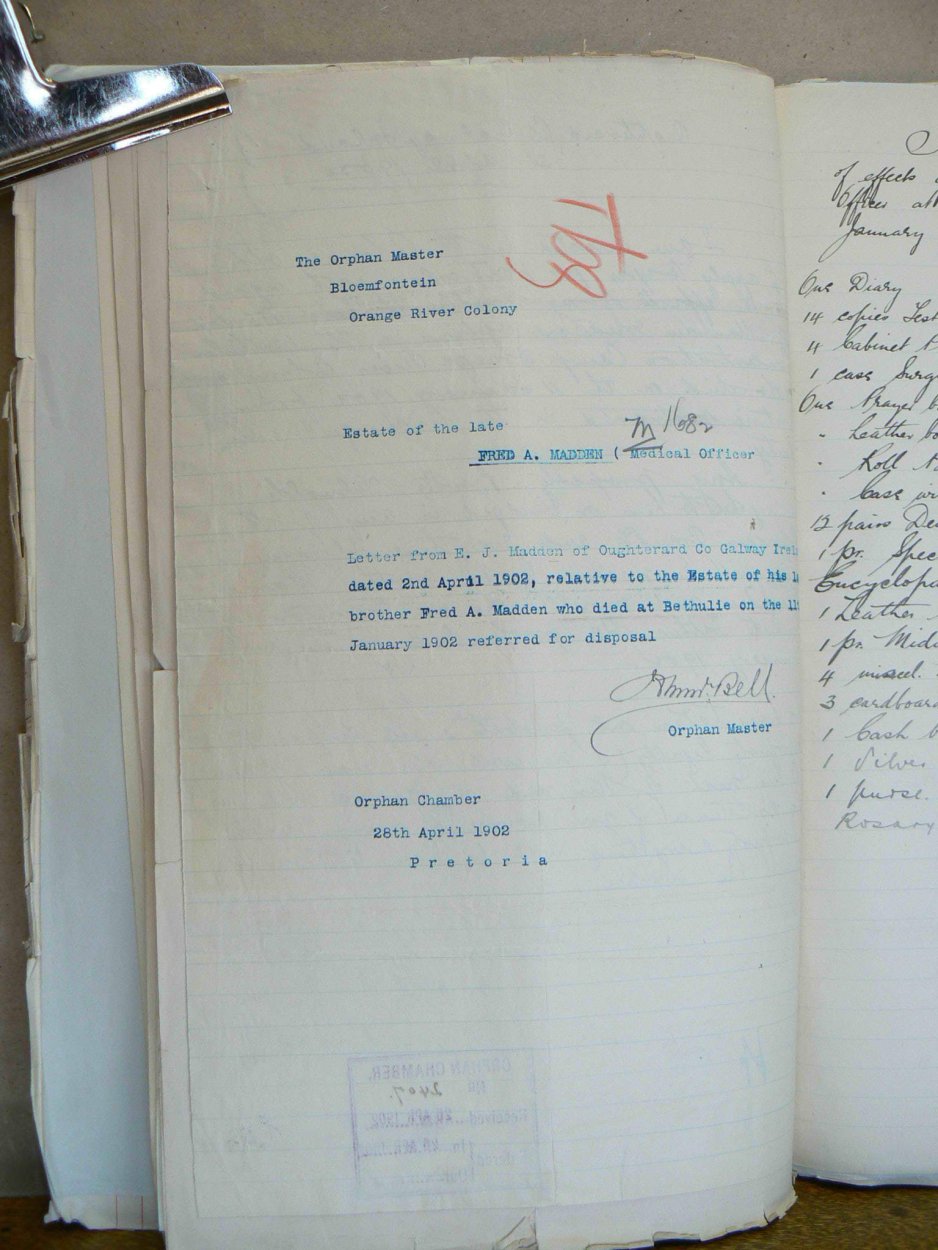 The Orphan Master
Bloemfontein
Orange River Colony
Estate of the late
M 1682
FRED A. MADDEN ( Medical Officer
Letter from E. J. Madden of Oughterard Co Galway Irel
dated 2nd April 1902, relative to the Estate of his l
brother Fred A. Madden who died at Bethulie on the 11
January 1902 referred for disposal
Bell
Orphan Master
Orphan Chamber
28th April 1902
Pretoria
ORPHAN CHAMBER.
No 2407.
Received
of effects
Offices at
January
One Diary
14 copies Test
4 Cabinet
1 case Surg
One Prayer b
" Leather bo
" Roll
" Case
12 pairs
1 pr. Spec
Encyclopa
1 Leather
1 pr.
4 miscel.
3 cardboard
1 Cash b
1 Silver
1 purse.
Rosary